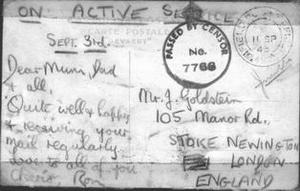 ON ACTIVE SERVICE
CARTE POSTALE
SEPT. 3rd.
Dear Mum, Dad
& all,
Quite well & happy
& receiving your
mail regularly.
Love to all of you
Cheerio Ron
PASSED BY CENSOR
No.
7766
SP
Mr. J. Goldstein
105 Manor Rd.,
STOKE NEWINGTON
LONDON
ENGLAND